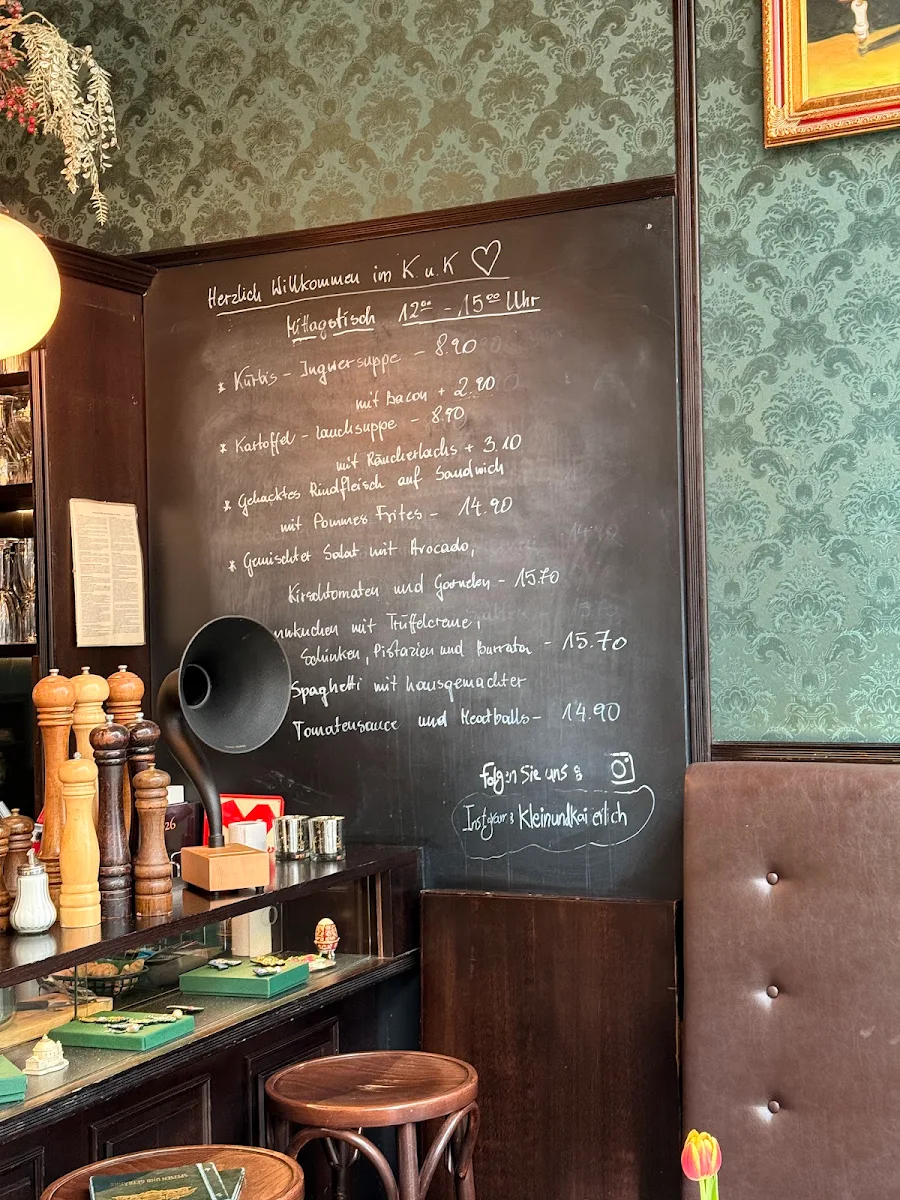 Herzlich Willkommen im K. u. K ♡
Mittagstisch 12⁰⁰ - 15⁰⁰ Uhr
* Kürbis - Ingwersuppe - 8.90
mit Bacon + 2.90
* Kartoffel - Lauchsuppe - 8.90
mit Räucherlachs + 3.10
* Gehacktes Rindfleisch auf Sandwich
mit Pommes Frites - 14.90
* Gemischter Salat mit Avocado,
Kirschtomaten und Garnelen - 15.70
nnkuchen mit Trüffelcreme,
Schinken, Pistazien und Burrata - 15.70
Spaghetti mit hausgemachter
Tomatensauce und Meatballs - 14.90
folgen Sie uns :
Kleinundkaierlich
SPEISEN UND GETRÄNKE